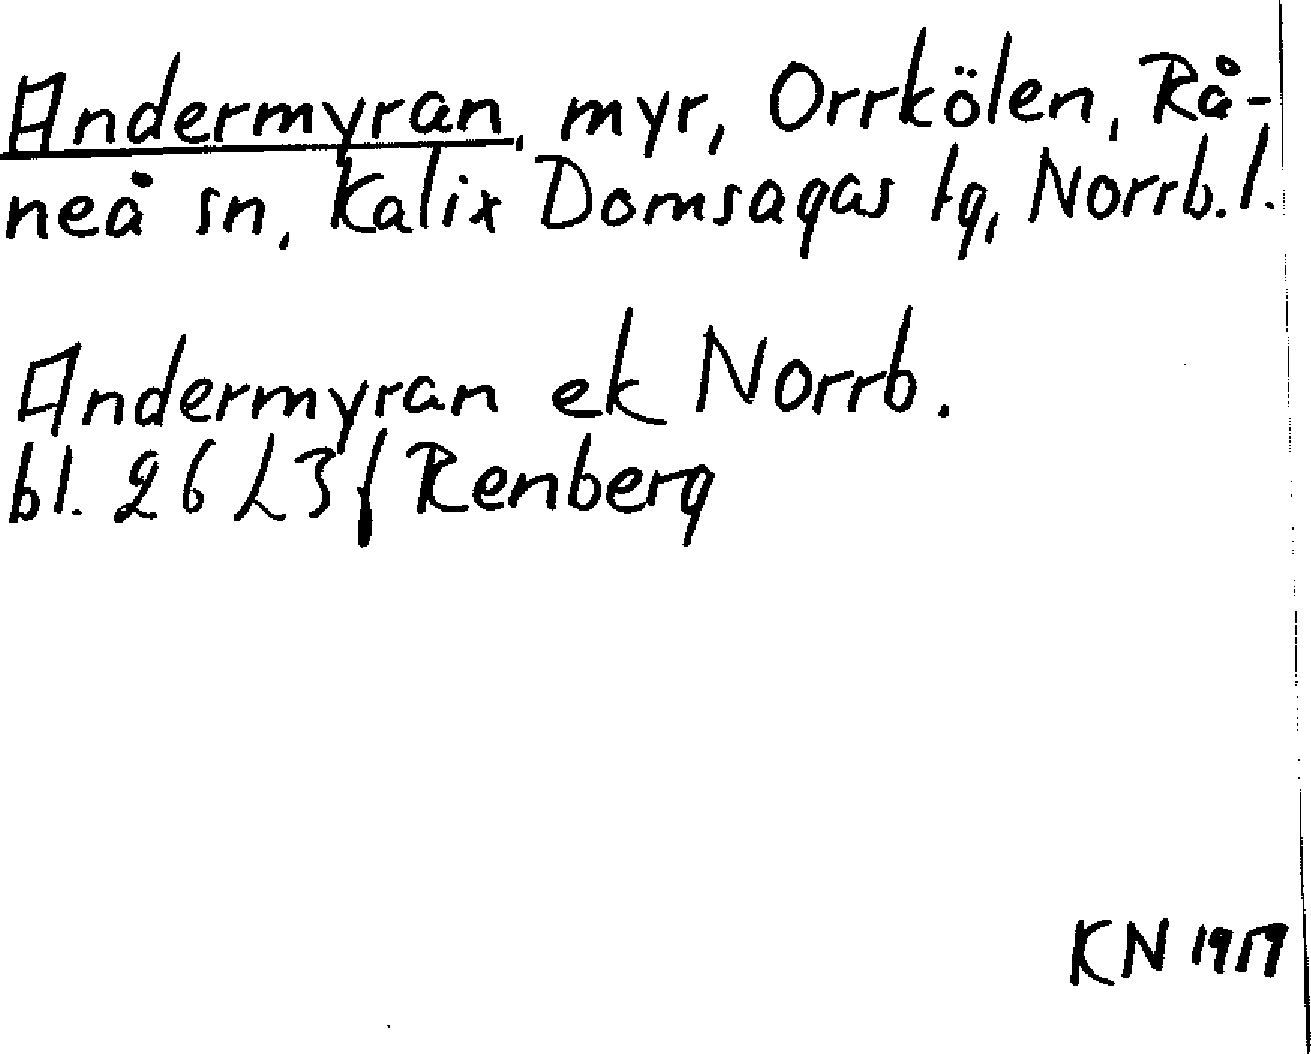 Andermyran, myr, Orrkölen, Rå-
neå sn, Kalix Domsagas tg, Norrb. l.
Andermyran ek Norrb.
bl. 26 L3 f Renberg
KN